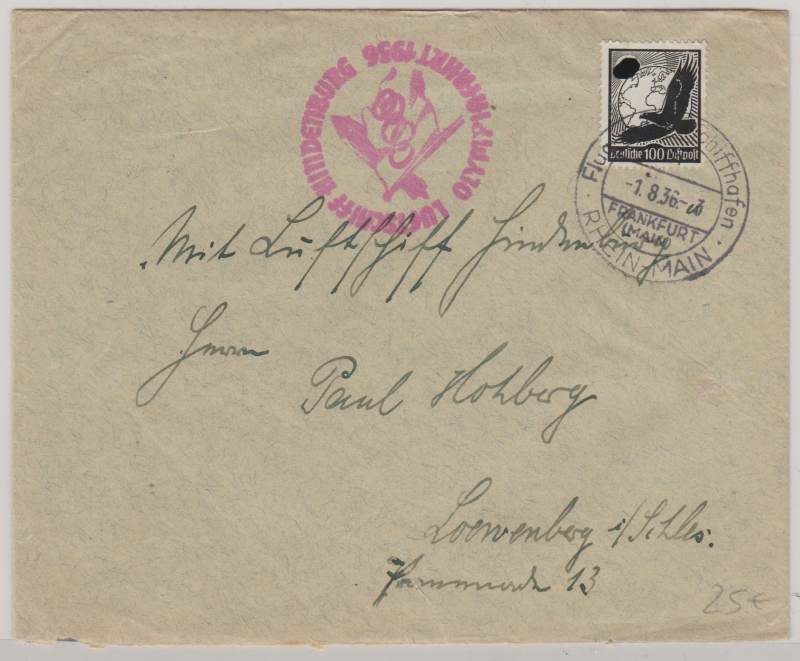 LUFTSCHIFF HINDENBURG OLYMPIAFAHRT 1936
Deutsche 100 Luftpost
Flug schiffhafen
-1.8.36.-3
FRANKFURT
(MAIN)
RHEIN-MAIN
Mit Luftschiff Hindenburg
Herrn
Paul Hohberg
Loewenberg i/Schles.
Promenade 13
25€